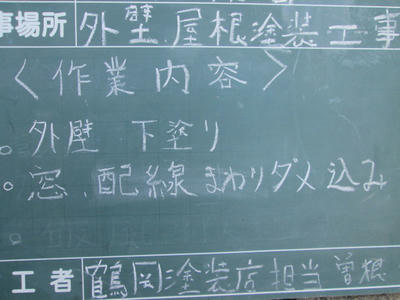 事場所 外壁屋根塗装工事
〈作業内容〉
。外壁 下塗り
。窓、配線まわりダメ込み
工者 鶴岡塗装店担当曽根